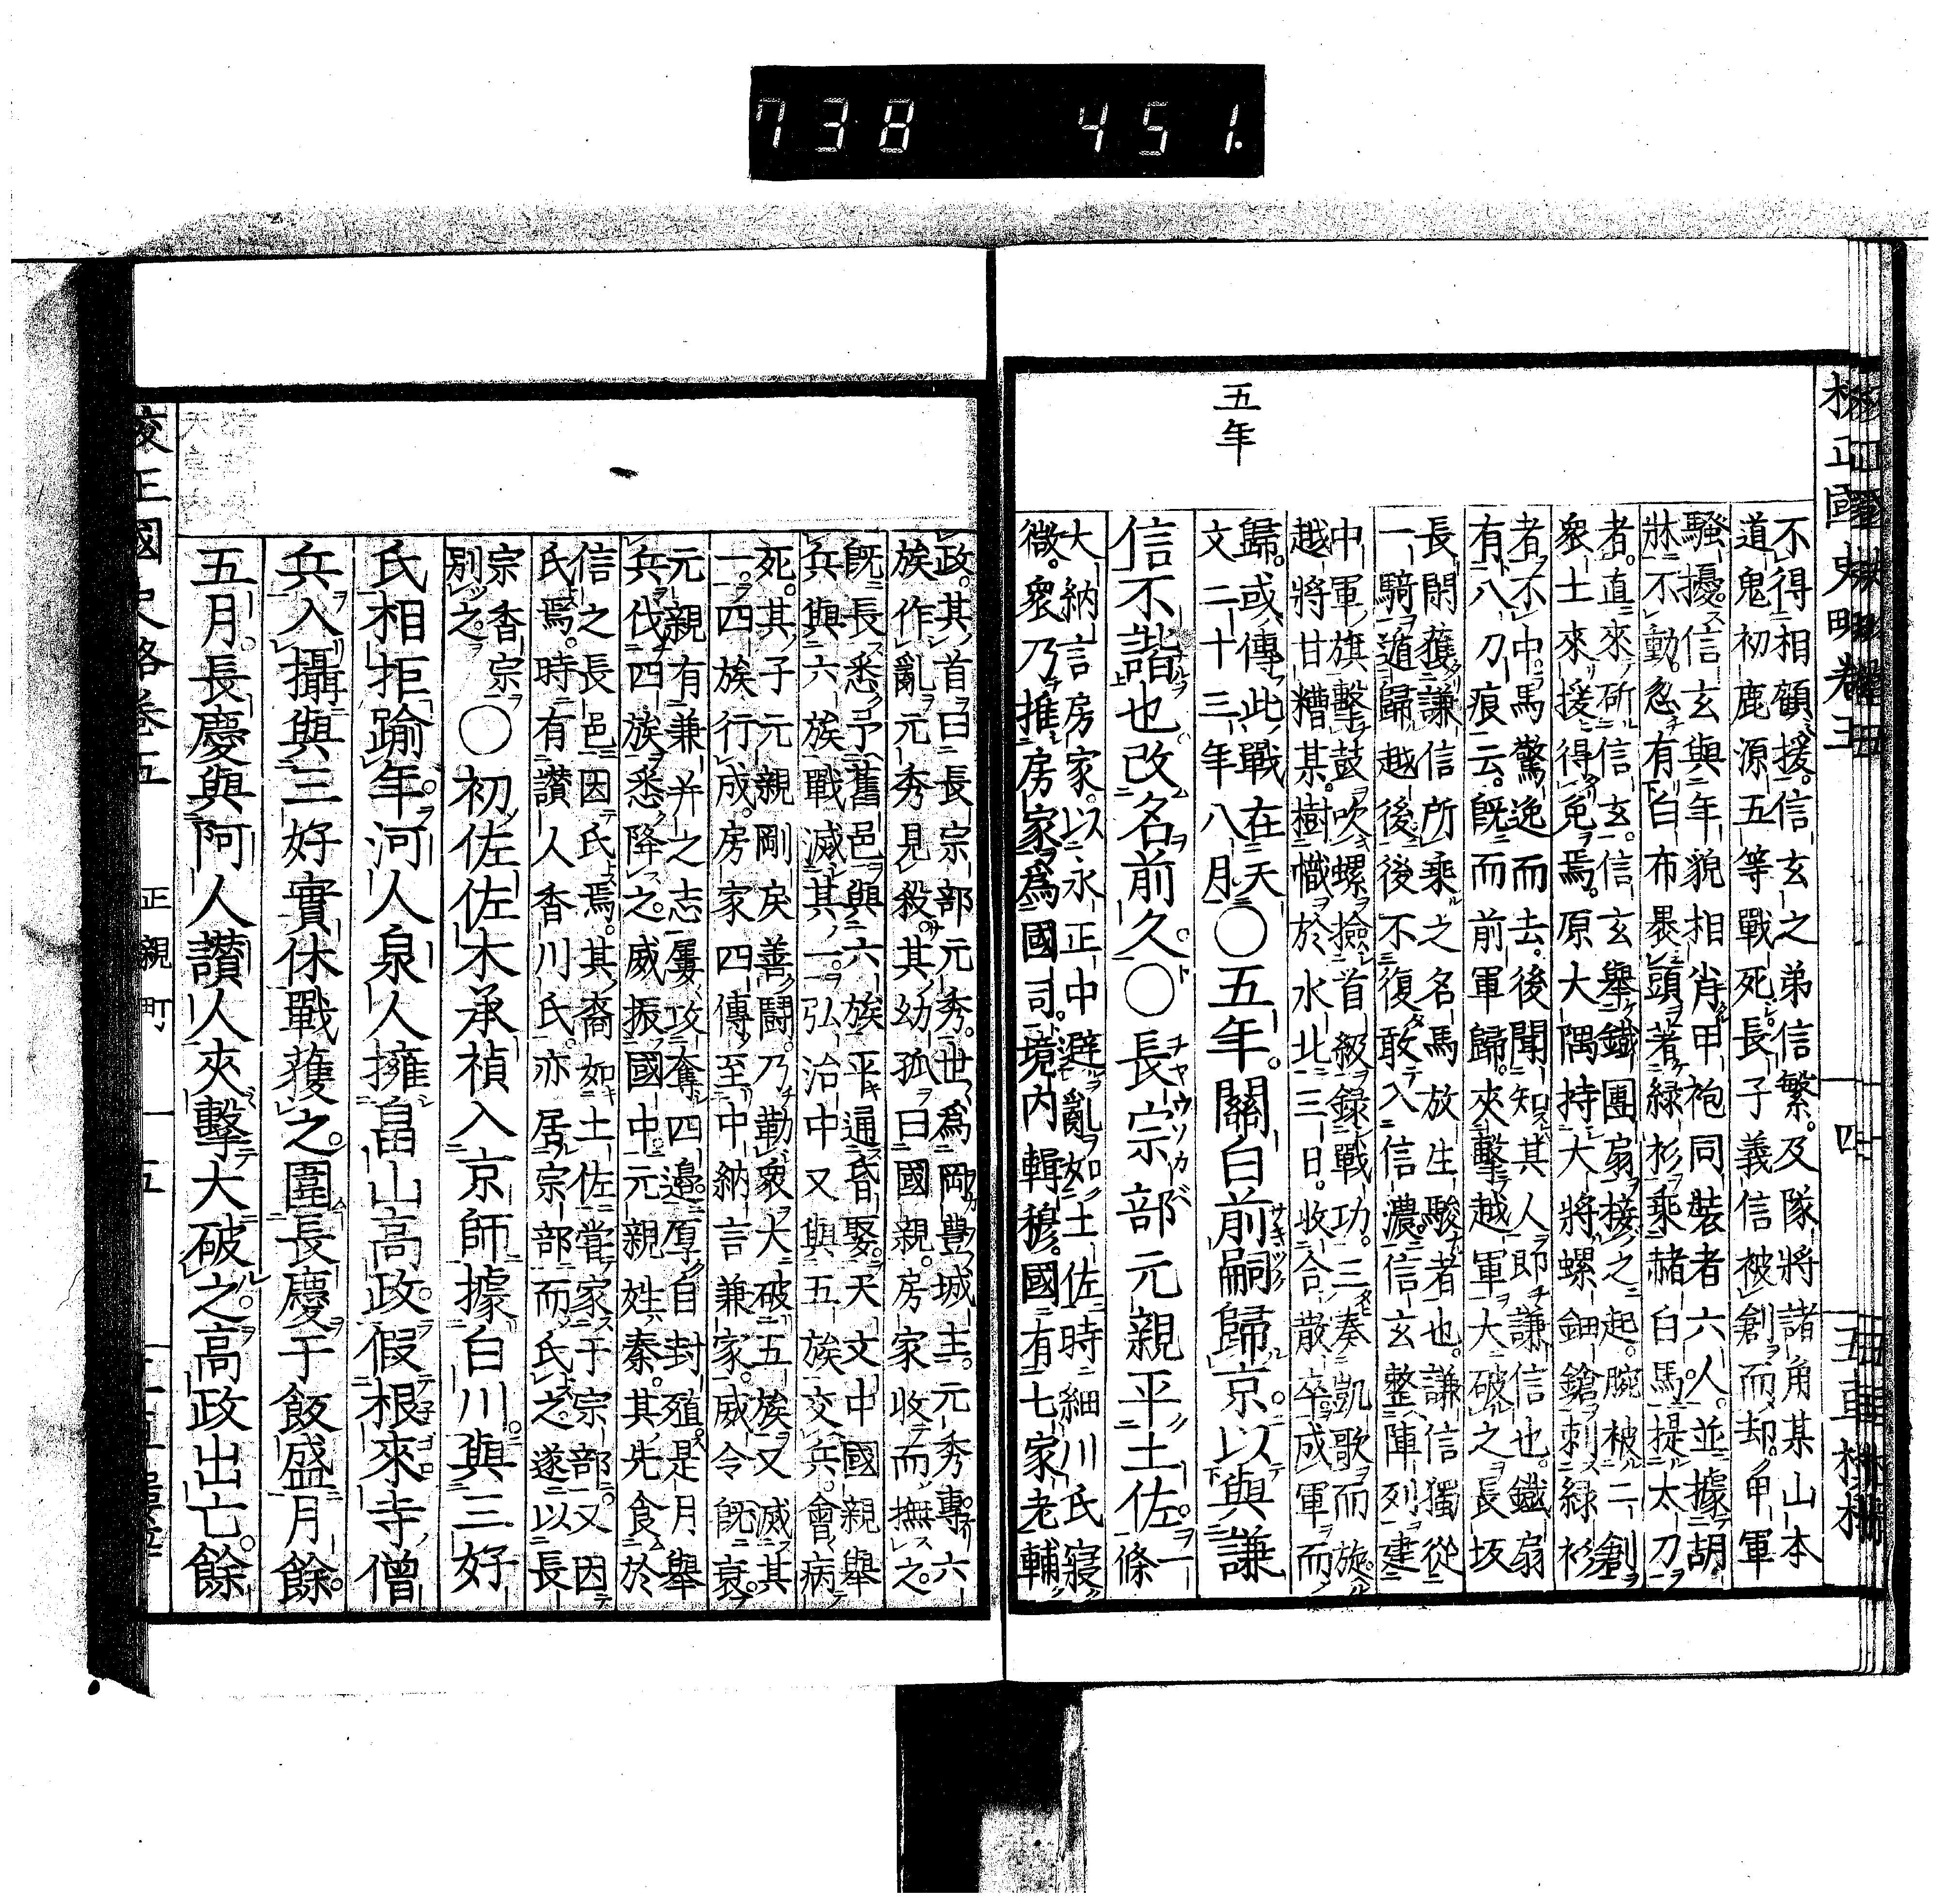 738 451.
五年
不得相顧援。信玄之弟信繁。及隊將諸角某山本
道鬼初鹿源五等戰死。長子義信被創而却。甲軍
騷擾。信玄與年貌相肖甲袍同裝者六人。並據胡
牀不動。忽有白布裹頭著緑衫乘赭白馬。提太刀
者。直來斫信玄。信玄擧鐵團扇接之起。腕被二創
衆士來援得免焉。原大隅持大將螺鈿鎗刺緑衫
者不中。馬驚逸而去。後聞知其人即謙信也。鐵扇
有八刀痕云。既而前軍歸。夾擊越軍大破之。長坂
長閑獲謙信所乘之名馬放生駿者也。謙信獨從
一騎遁歸越後。後不復敢入信濃。信玄整陣列建
中軍旗擊鼓吹螺。撿首級錄戰功。三奏凱歌而旋。
越將甘糟某樹幟於水北三日。收合散卒成軍而
歸。或傳此戰在天
文二十三年八月〇五年。關白前嗣歸京。以與謙
信不諧也。改名前久。〇長宗部元親平土佐。一條
大納言房家。以永正中避亂如土佐。時細川氏寢
微。衆乃推房家爲國司。境内輯穆。國有七家老輔
政。其首曰長宗部元秀。世爲岡豊城主。元秀專六
族作亂元秀見殺。其幼孤曰國親。房家收而撫之。
既長悉予舊邑。與六族平通昏娶。天文中國親擧
兵與六族戰滅其一。弘治中又與五族交兵。會病
死。其子元親剛戾善鬪。乃勒衆大破五族。又滅其
一。四族行成。房家四傳至中納言兼家。威令既衰。
元親有兼并之志。屢攻奪四邊。厚自封殖。是月擧
兵伐四族。悉降之。威振國中。元親姓秦。其先食於
信之長邑。因氏焉。其裔如土佐。嘗家于宗部。又因
氏焉。時有讃人香川氏。亦居宗部而氏之。遂以長
宗香宗
別之。〇初佐佐木承禎入京師。據白川。與三好
氏相拒踰年。河人泉人擁畠山高政。假根來寺僧
兵入攝與三好實休戰獲之。圍長慶于飯盛月餘。
五月。長慶與阿人讃人夾擊大破之。高政出亡。餘
校正國史略卷五 正親町 十五